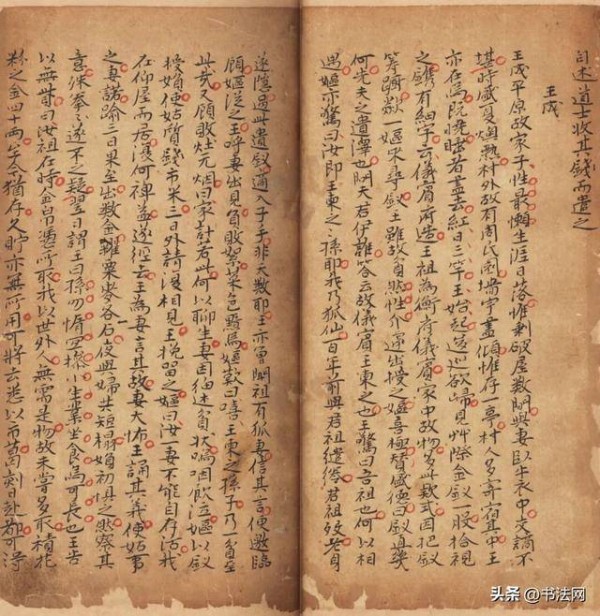 自述道士收其錢而遣之
王成
王成平原故家子性最懶生涯日落惟剩破屋數間與妻臥牛衣中交謫不
堪時盛夏燠熱村外故有周氏園墻宇盡傾惟存一亭村人多寄宿其中王
亦在焉既曉睡者盡去紅日三竿王始起逡巡欲歸見艸際金釵一股拾視
之鐫有細字云儀賓府造王祖為衡府儀賓家中故物多此欵式因把釵
躊躇欻一嫗來尋釵王雖故貧然性介遽出授之嫗喜極贊盛德曰釵直幾
何先夫之遺澤也問夫君伊誰答云故儀賓王柬之也王驚曰吾祖也何以相
遇嫗亦驚曰汝即王柬之之孫耶我乃狐仙百年前與君祖繾綣君祖歿老身
遂隱過此遺釵適入子手非天數耶王亦曾聞祖有狐妻信其言便邀臨
顧嫗從之王呼妻出見負敗絮菜色黯焉嫗歎曰嘻王柬之孫子乃一貧至
此哉又顧敗灶无烟曰家計若此何以聊生妻因細述貧狀嗚咽飲泣嫗以釵
授婦使姑質錢市米三日外請復相見王挽留之嫗曰汝一妻不能自存活我
在仰屋而居復何裨益遂徑去王為妻言其故妻大怖王誦其義使姑事
之妻諾踰三日果至出數金糴粟麥各石夜與婦共短榻婦初懼之然察其
意殊拳拳遂不之疑翌日謂王曰孫勿惰宜操小生業坐食烏可長也王告
以無貲曰汝祖在時金帛憑所取我以世外人無需是物故未嘗多取積花
粉之金四十兩至今猶存久貯亦無所用可將去悉以市葛刻日赴都可得
头条 @书法网